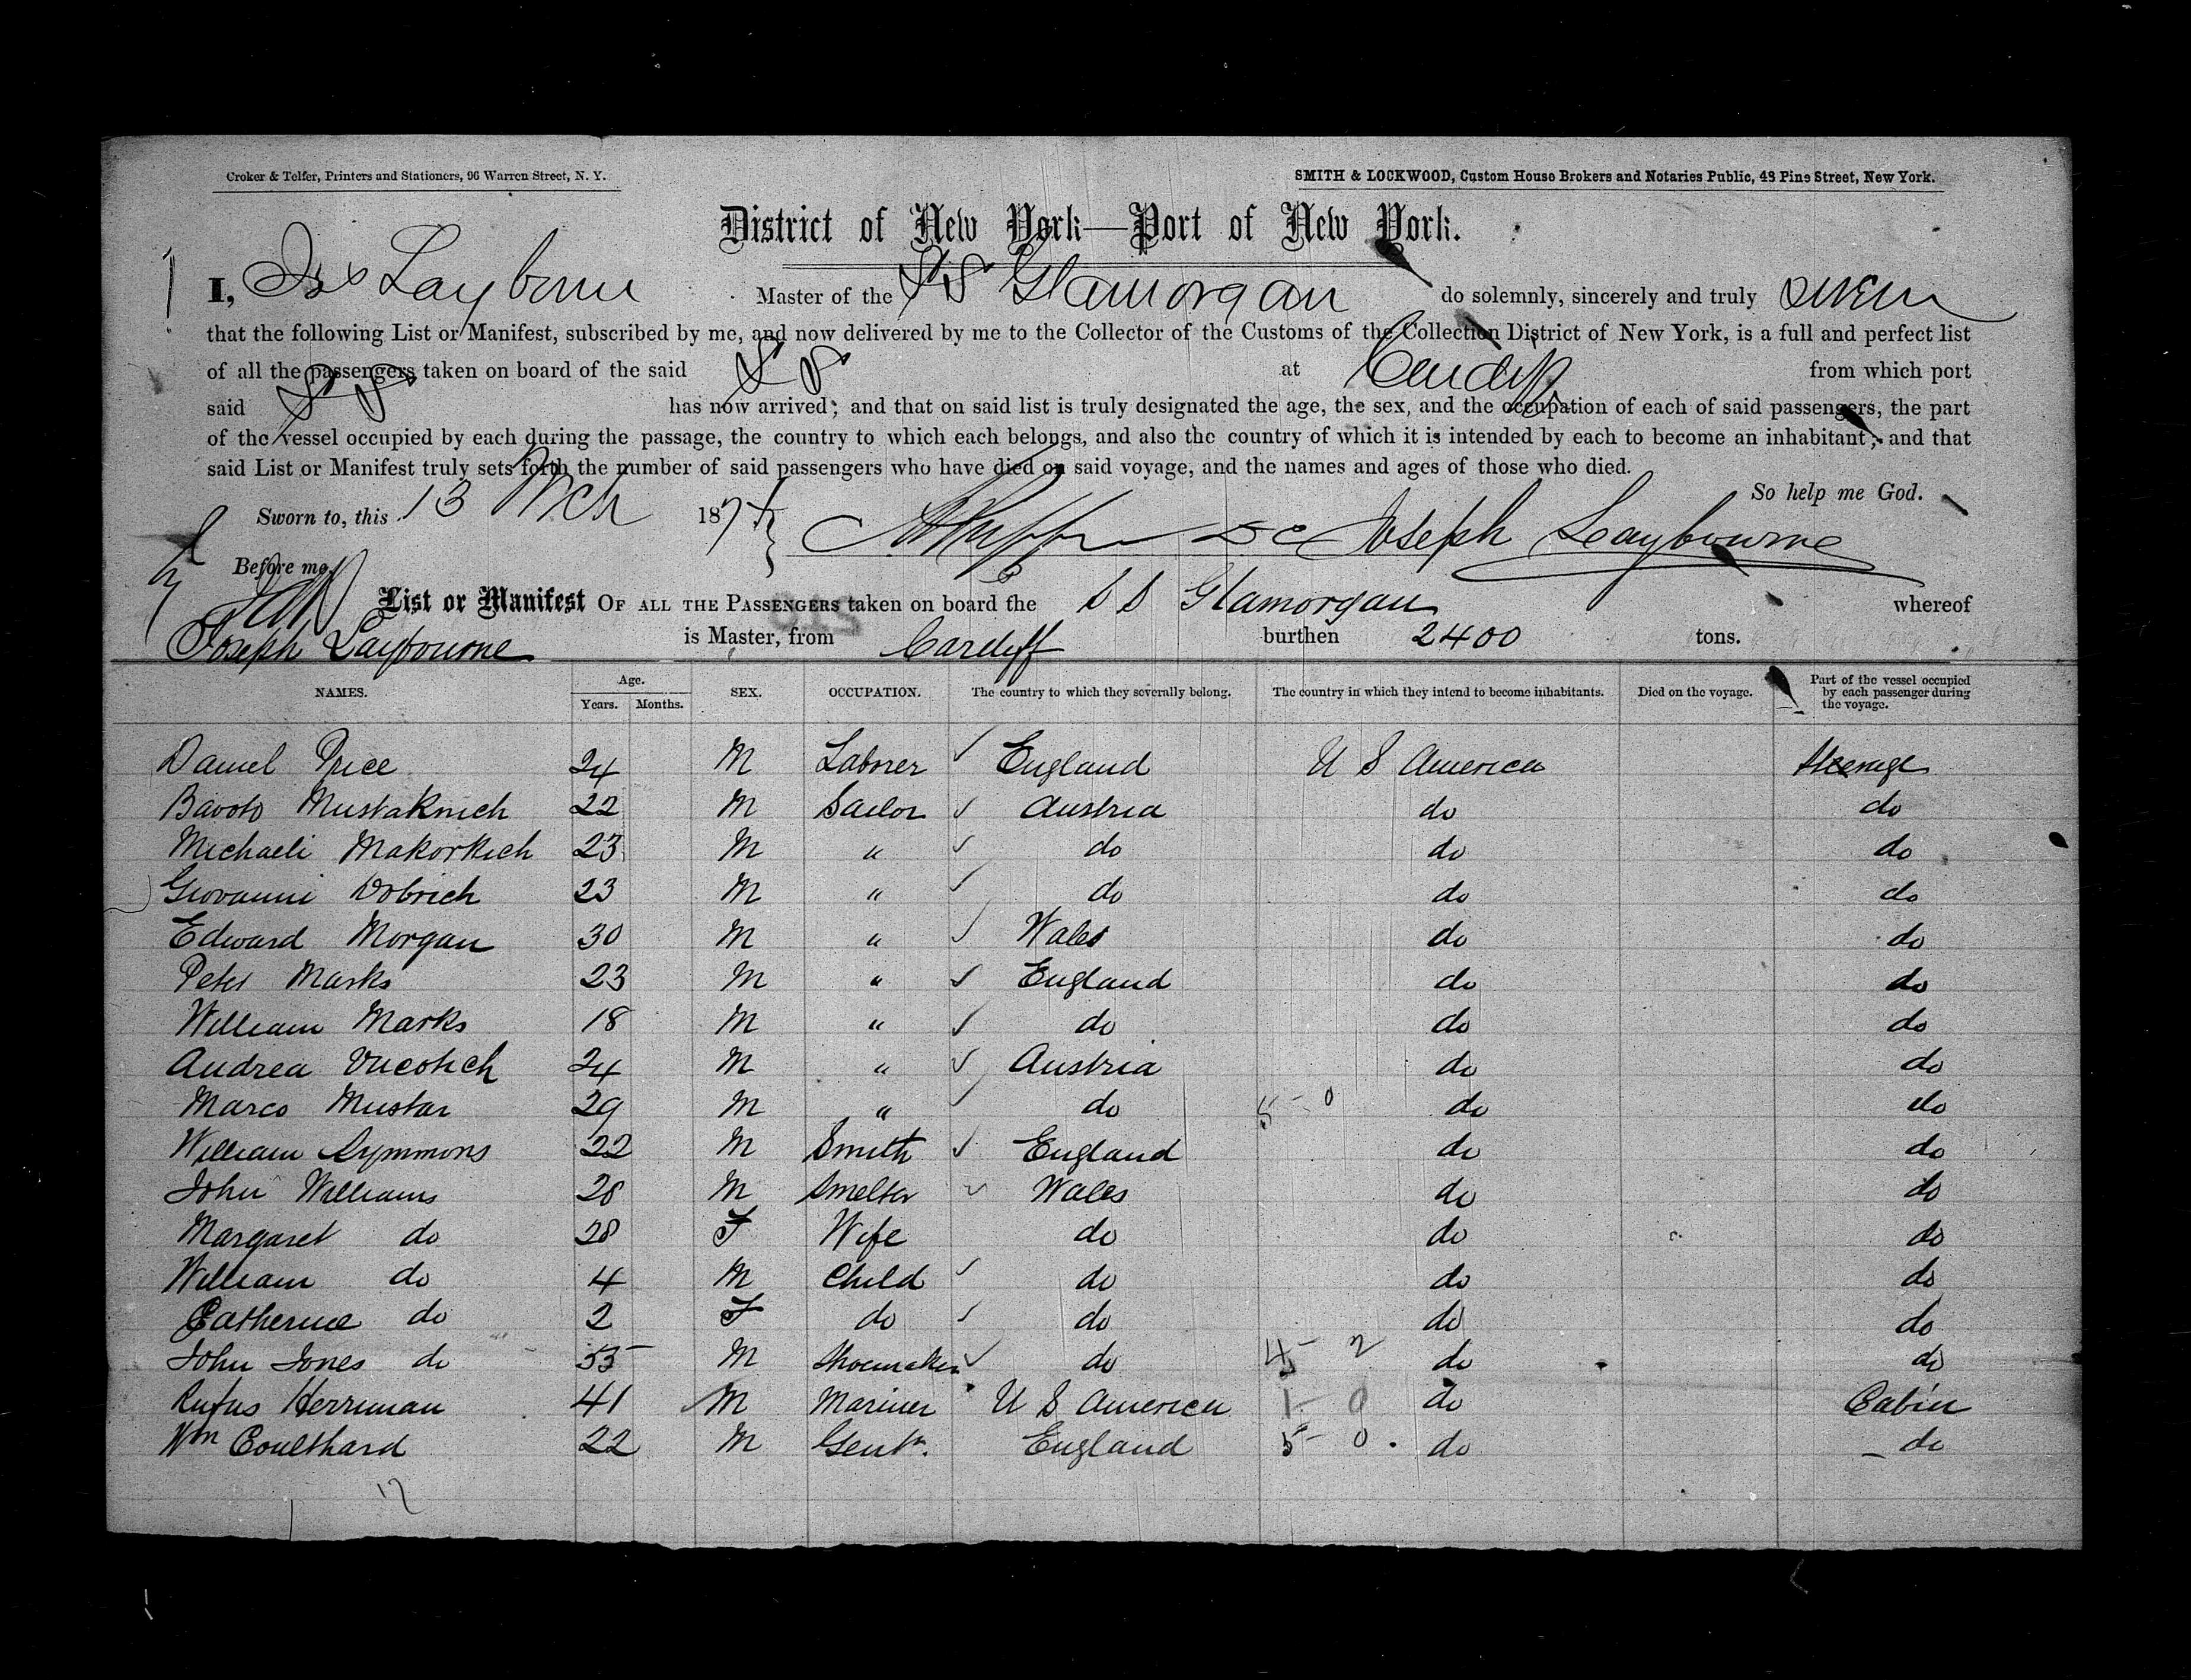 Croker & Telfer, Printers and Stationers, 96 Warren Street, N. Y.
SMITH & LOCKWOOD, Custom House Brokers and Notaries Public, 48 Pine Street, New York.
District of New York—Port of New York.
I, Jos Laybourne Master of the SS Glamorgan do solemnly, sincerely and truly swear
that the following List or Manifest, subscribed by me, and now delivered by me to the Collector of the Customs of the Collection District of New York, is a full and perfect list
of all the passengers taken on board of the said SS at Cardiff from which port
said SS has now arrived; and that on said list is truly designated the age, the sex, and the occupation of each of said passengers, the part
of the vessel occupied by each during the passage, the country to which each belongs, and also the country of which it is intended by each to become an inhabitant; and that
said List or Manifest truly sets forth the number of said passengers who have died on said voyage, and the names and ages of those who died.
So help me God.
Sworn to, this 13 Mch 187 Joseph Laybourne
Before me,
List or Manifest OF ALL THE PASSENGERS taken on board the S S Glamorgan whereof
Joseph Laybourne is Master, from Cardiff burthen 2400 tons.
NAMES. Age. Years. Months. SEX. OCCUPATION. The country to which they severally belong. The country in which they intend to become inhabitants. Died on the voyage. Part of the vessel occupied by each passenger during the voyage.
Daniel Price 24 M Laborer England U S America Steerage
Bavoto Mustaknich 22 M Sailor Austria do do
Michaeli Makorkich 23 M " do do do
Giovanni Dobrich 23 M " do do do
Edward Morgan 30 M " Wales do do
Peter Marks 23 M " England do do
William Marks 18 M " do do do
Andrea Vucotich 24 M " Austria do do
Marco Mustar 29 M " do 5-0 do do
William Symmons 22 M Smith England do do
John Williams 28 M Smelter Wales do do
Margaret do 28 F Wife do do do
William do 4 M Child do do do
Catherine do 2 F do do do do
John Jones do 55 M Shoemaker do 4-2 do do
Rufus Herriman 41 M Mariner U S America 1-0 do Cabin
Wm Coulthard 22 M Gentn. England 5-0 do do
17